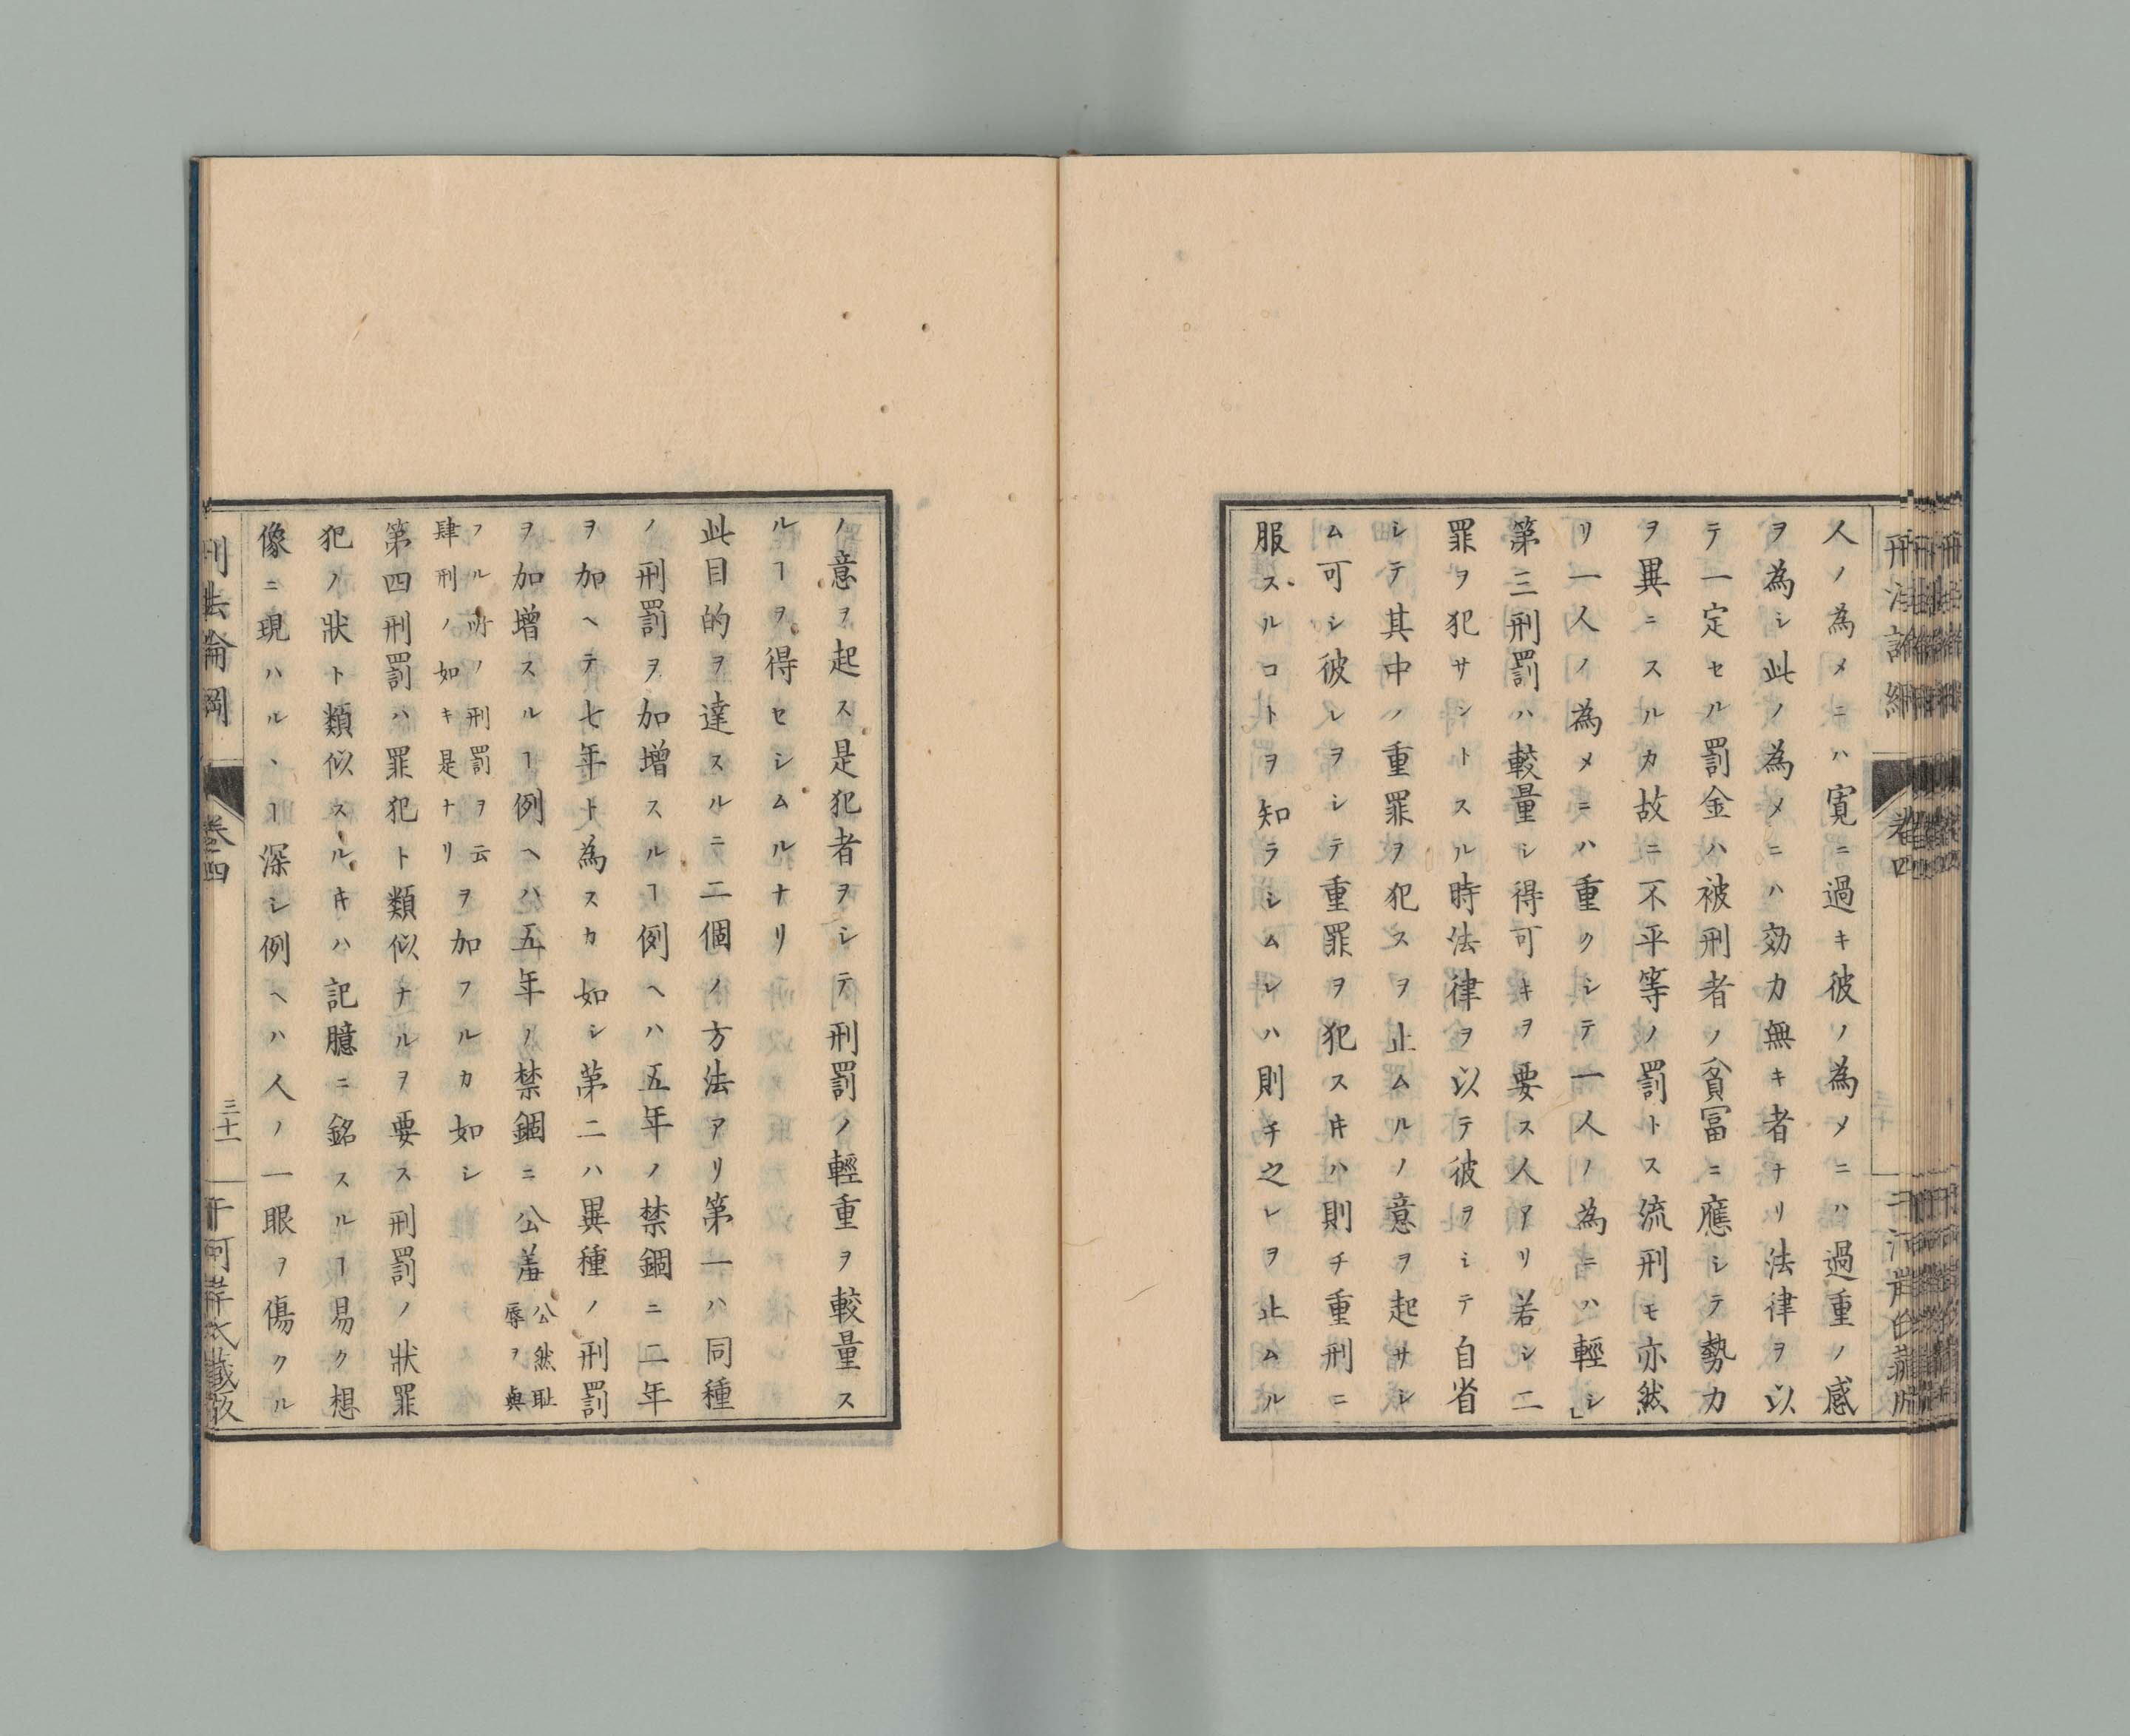 人ノ為メニハ寛ニ過キ彼ノ為メニハ過重ノ感
ヲ為シ此ノ為メニハ効力無キ者ナリ法律ヲ以
テ一定セル罰金ハ被刑者ノ貧冨ニ應シテ勢力
ヲ異ニスルカ故ニ不平等ノ罰トス流刑モ亦然
リ一人ノ為メニハ重クシテ一人ノ為ニハ輕シ」
第三刑罰ハ較量シ得可キヲ要ス人アリ若シ二
罪ヲ犯サントスル時法律ヲ以テ彼ヲシテ自省
シテ其中ノ重罪ヲ犯スヲ止ムルノ意ヲ起サシ
ム可シ彼レヲシテ重罪ヲ犯スキハ則チ重刑ニ
服スルコトヲ知ラシムレハ則チ之レヲ止ムル
ノ意ヲ起ス是犯者ヲシテ刑罰ノ輕重ヲ較量ス
ルヿヲ得セシムルナリ
此目的ヲ達スルニ二個ノ方法アリ第一ハ同種
ノ刑罰ヲ加增スルヿ例ヘハ五年ノ禁錮ニ二年
ヲ加ヘテ七年ト為スカ如シ第二ハ異種ノ刑罰
ヲ加增スルヿ例ヘハ五年ノ禁錮ニ公羞公然耻辱ヲ與
フル所ノ刑罰ヲ云肆刑ノ如キ是ナリヲ加フルカ如シ
第四刑罰ハ罪犯ト類似ナルヲ要ス刑罰ノ狀罪
犯ノ狀ト類似スルキハ記臆ニ銘スルヿ易ク想
像ニ現ハル、ヿ深シ例ヘハ人ノ一眼ヲ傷クル
刑法論綱
卷四
三十一